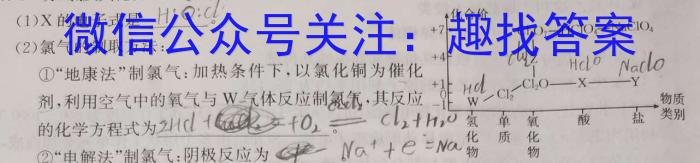 (1)X的电子式是 H:O:Cl
(2)氯气的制取方法:
微信公众号关注：趣找答案
①“地康法”制氯气:加热条件下,以氯化铜为催化
剂,利用空气中的氧气与W气体反应制氯气,其反应
的化学方程式为 2HCl + O₂ Cl₂+H₂O 。
②“电解法”制氯气:阴极反应为 Na⁺+e⁻=Na
化合价
+7
+4
+1
0
-1
HCl
W
Cl₂
Cl₂O
HClO
X
NaClO
Y
物质
类别
氢化物
单质
氧化物
酸
盐